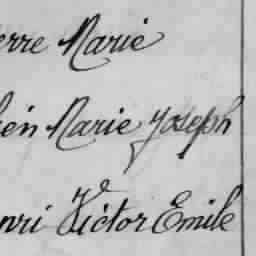 erre Marie
ien Marie Joseph
nri Victor Emile